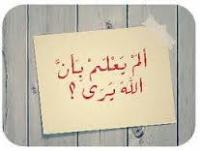 أَلَمْ يَعْلَمْ بِأَنَّ
اللَّهَ يَرَى ؟